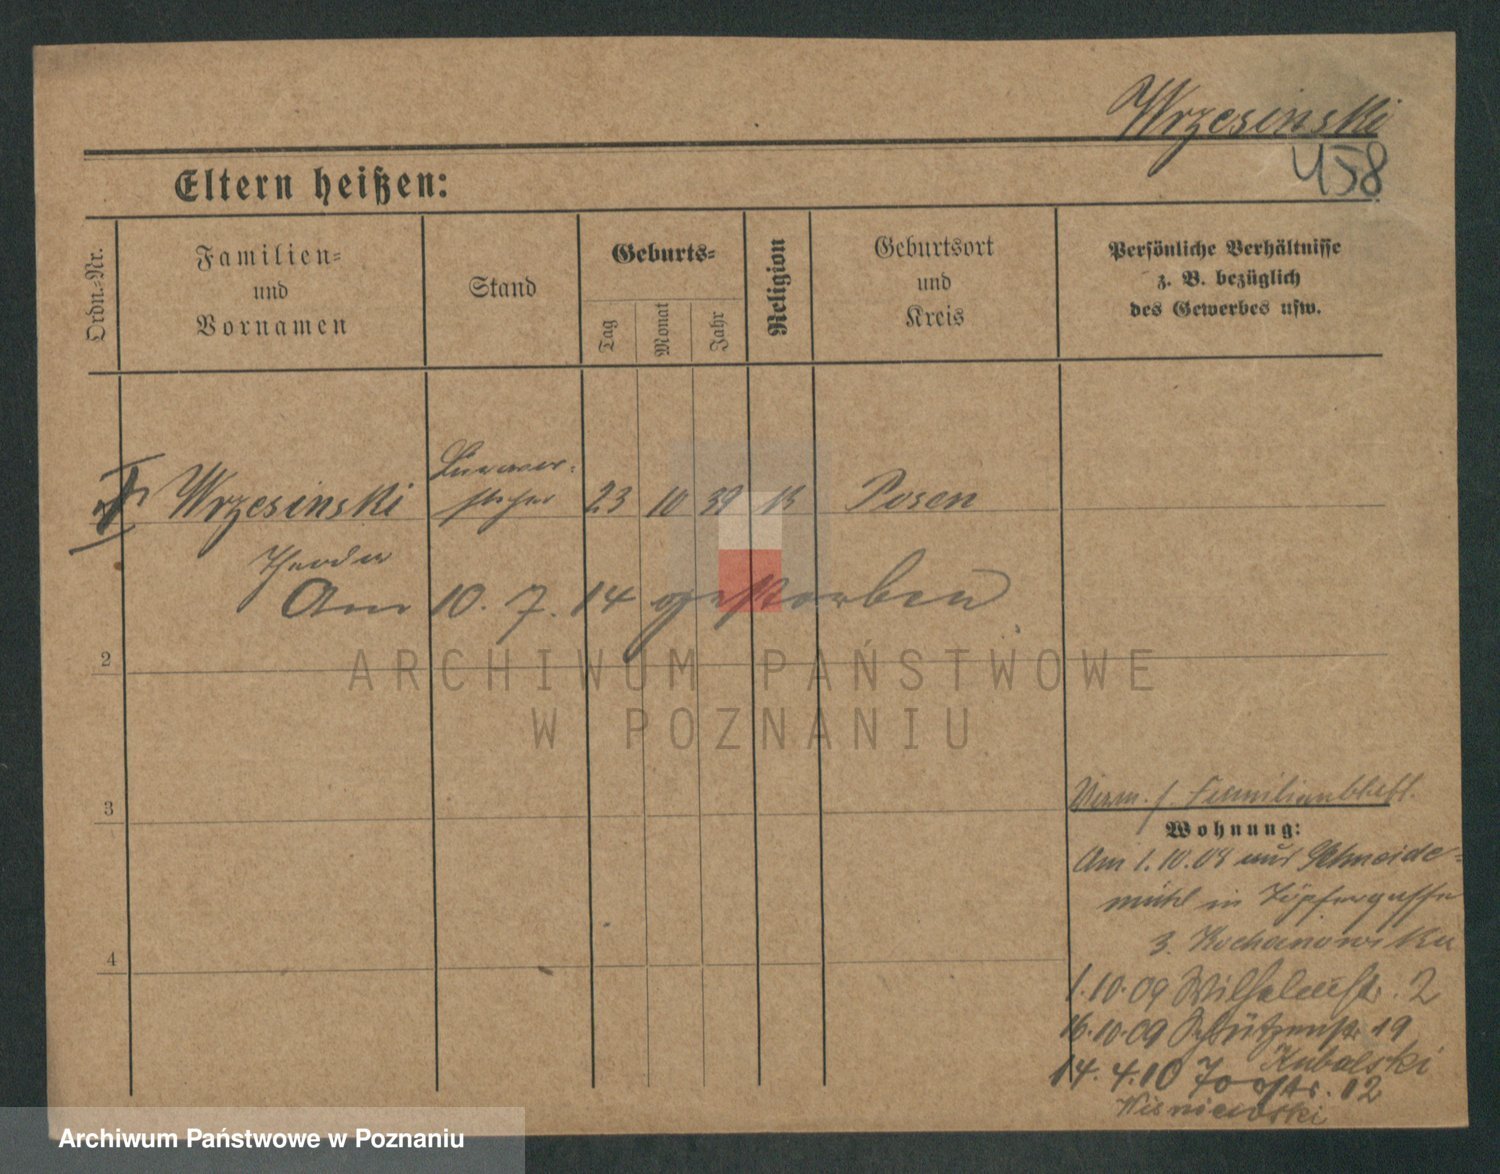 Wrzesinski
458
Eltern heißen:
Ordn.-Nr.
Familien-
und
Vornamen
Stand
Geburts-
Tag
Monat
Jahr
Religion
Geburtsort
und
Kreis
Persönliche Verhältnisse
z. B. bezüglich
des Gewerbes usw.
Wrzesinski 23 10 39 Posen
Theodor
Am 10. 7. 14 gestorben
ARCHIWUM PAŃSTWOWE
W POZNANIU
2
3
4
Verm. s. Familienblatt.
Wohnung:
Am 1.10.08 aus Schneide-
mühl in Töpfergasse
3. Kochanowska
1.10.09 Wilhelmstr. 2
16.10.09 Schützenstr. 19
Kubalski
14.4.10 12
Wisniewski
Archiwum Państwowe w Poznaniu